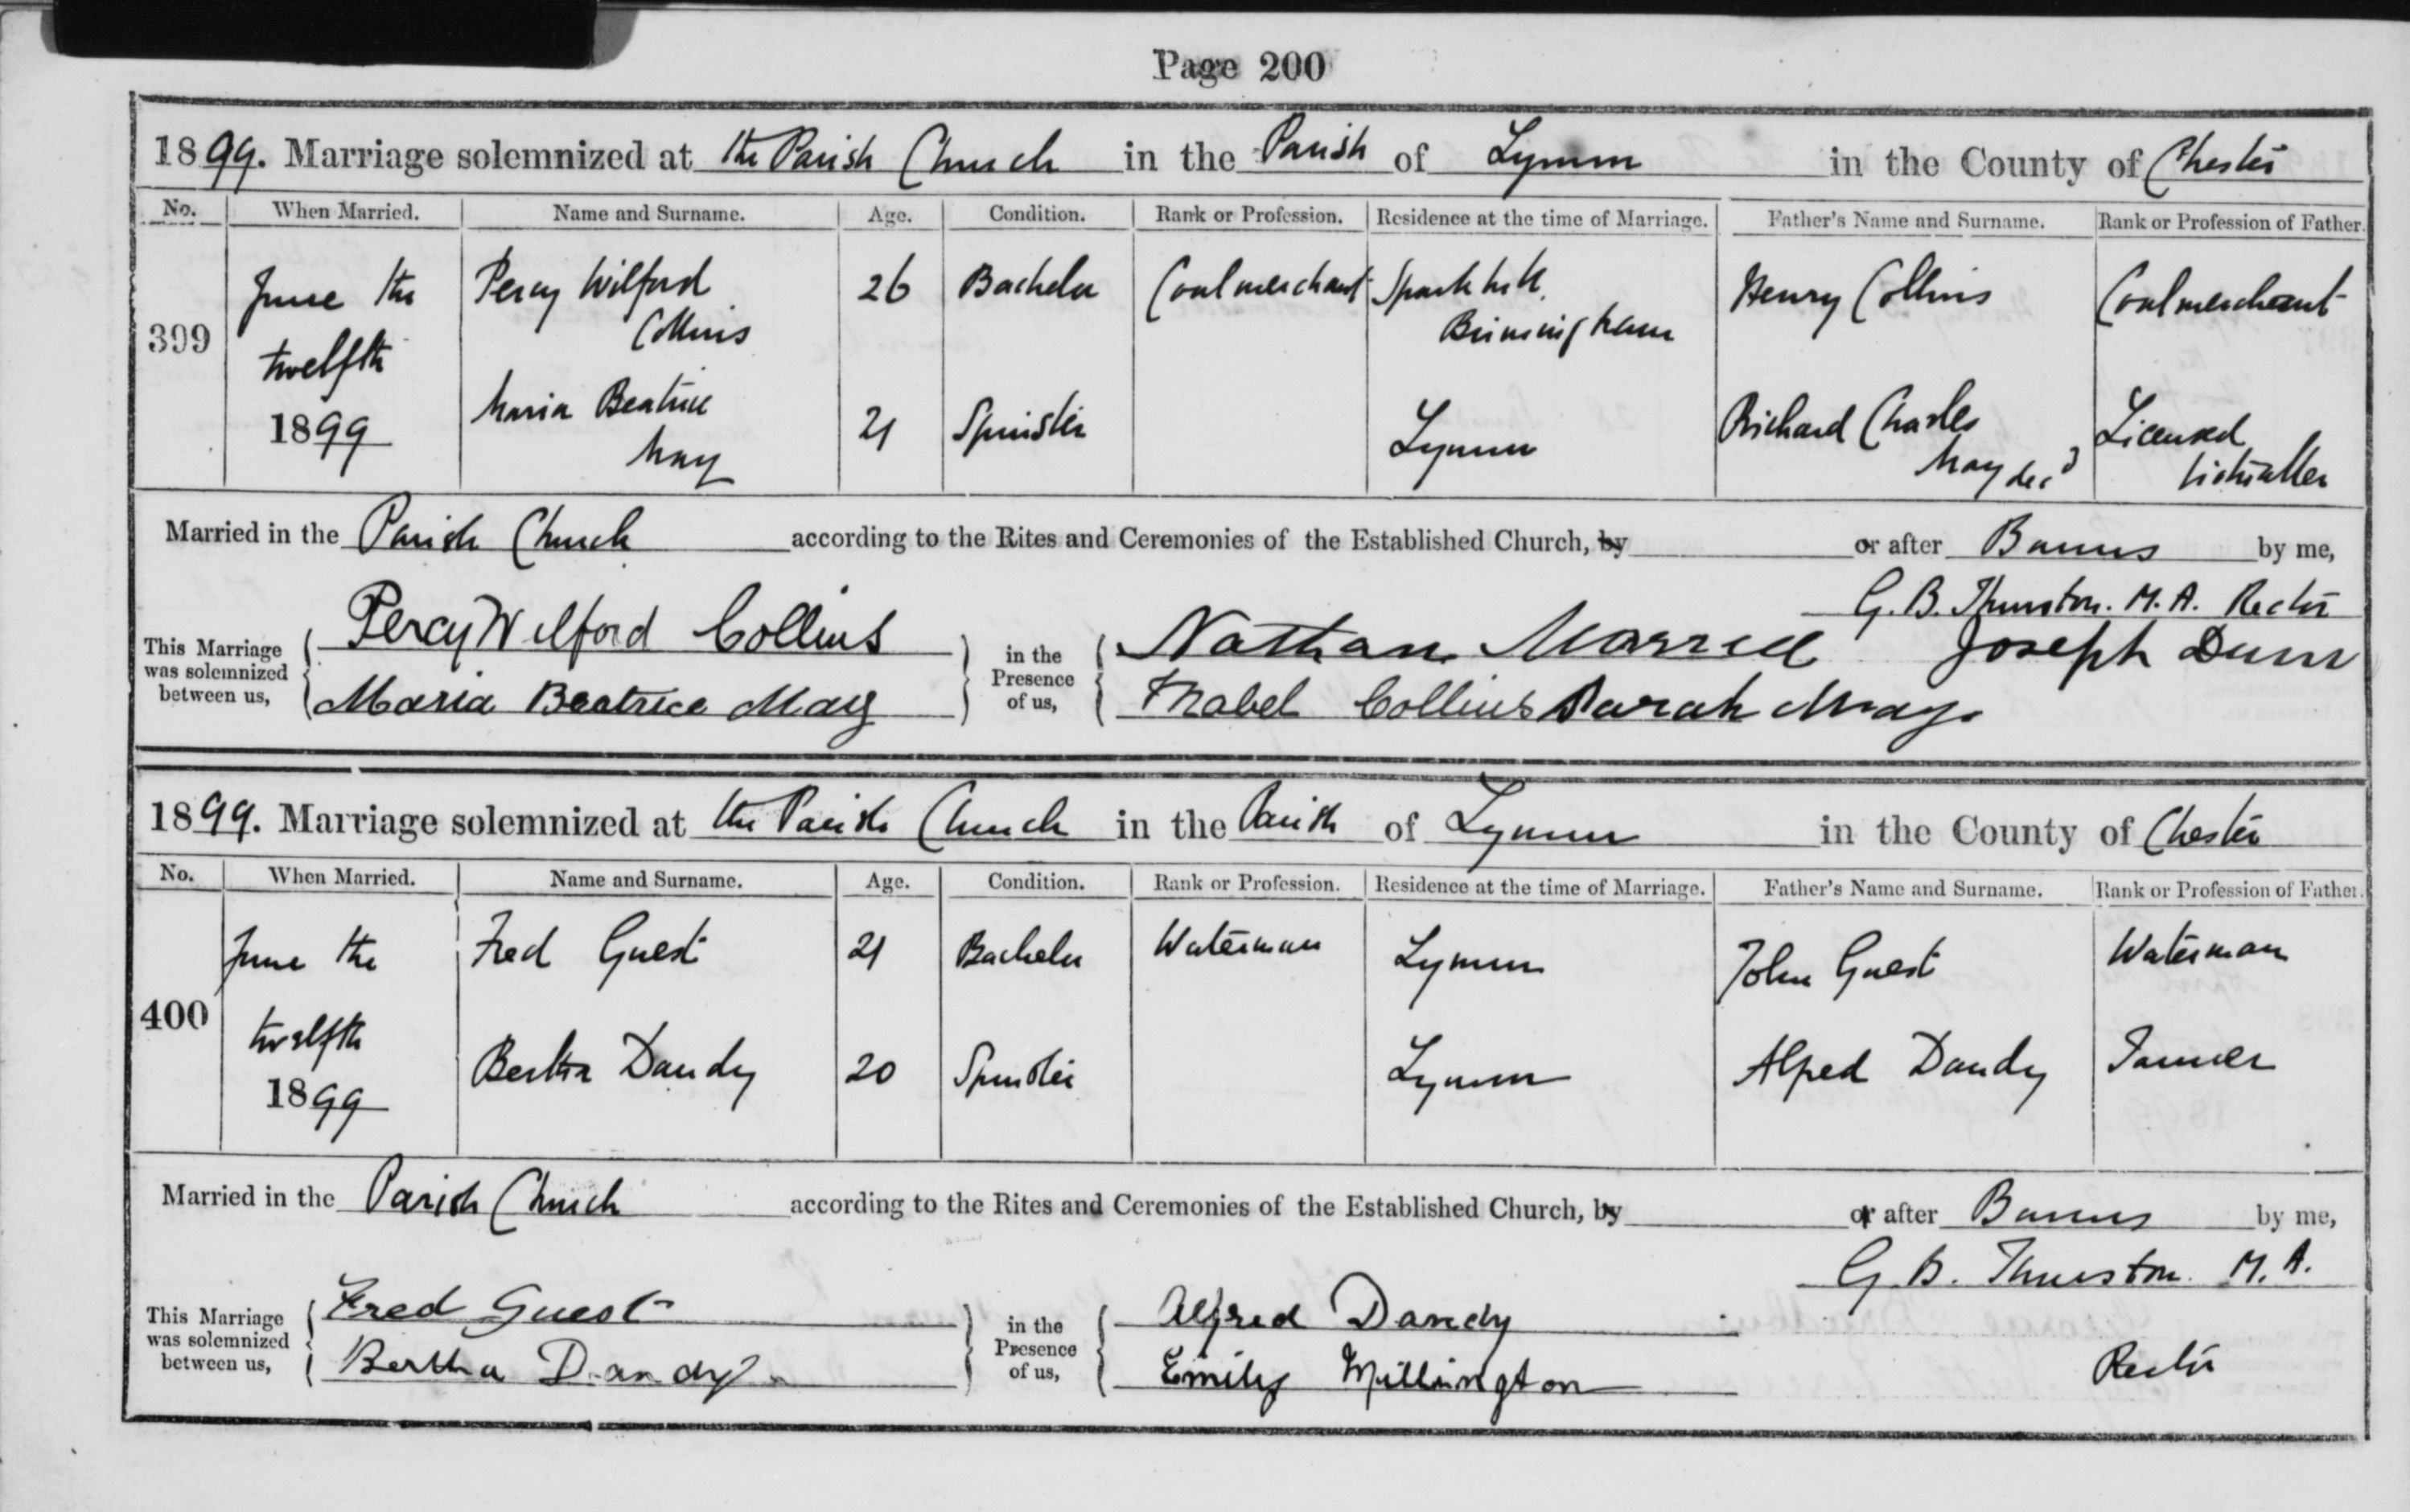 Page 200
1899. Marriage solemnized at the Parish Church in the Parish of Lymm in the County of Chester
No. When Married. Name and Surname. Age. Condition. Rank or Profession. Residence at the time of Marriage. Father's Name and Surname. Rank or Profession of Father.
399
June the twelfth 1899
Percy Wilford Collins 26 Bachelor Coalmerchant Sparkhill Birmingham Henry Collins Coalmerchant
Maria Beatrice May 21 Spinster Lymm Richard Charles May decd Licensed Victualler
Married in the Parish Church according to the Rites and Ceremonies of the Established Church, by or after Banns by me,
G. B. Thurston. M. A. Rector
This Marriage was solemnized between us,
Percy Wilford Collins
Maria Beatrice May
in the Presence of us,
Nathan Joseph Dunn
Mabel Collins Sarah May
1899. Marriage solemnized at the Parish Church in the Parish of Lymm in the County of Chester
No. When Married. Name and Surname. Age. Condition. Rank or Profession. Residence at the time of Marriage. Father's Name and Surname. Rank or Profession of Father.
400
June the twelfth 1899
Fred Guest 21 Bachelor Waterman Lymm John Guest Waterman
Bertha Dandy 20 Spinster Lymm Alfred Dandy Tanner
Married in the Parish Church according to the Rites and Ceremonies of the Established Church, by or after Banns by me,
G. B. Thurston. M. A.
Rector
This Marriage was solemnized between us,
Fred Guest
Bertha Dandy
in the Presence of us,
Alfred Dandy
Emily Millington